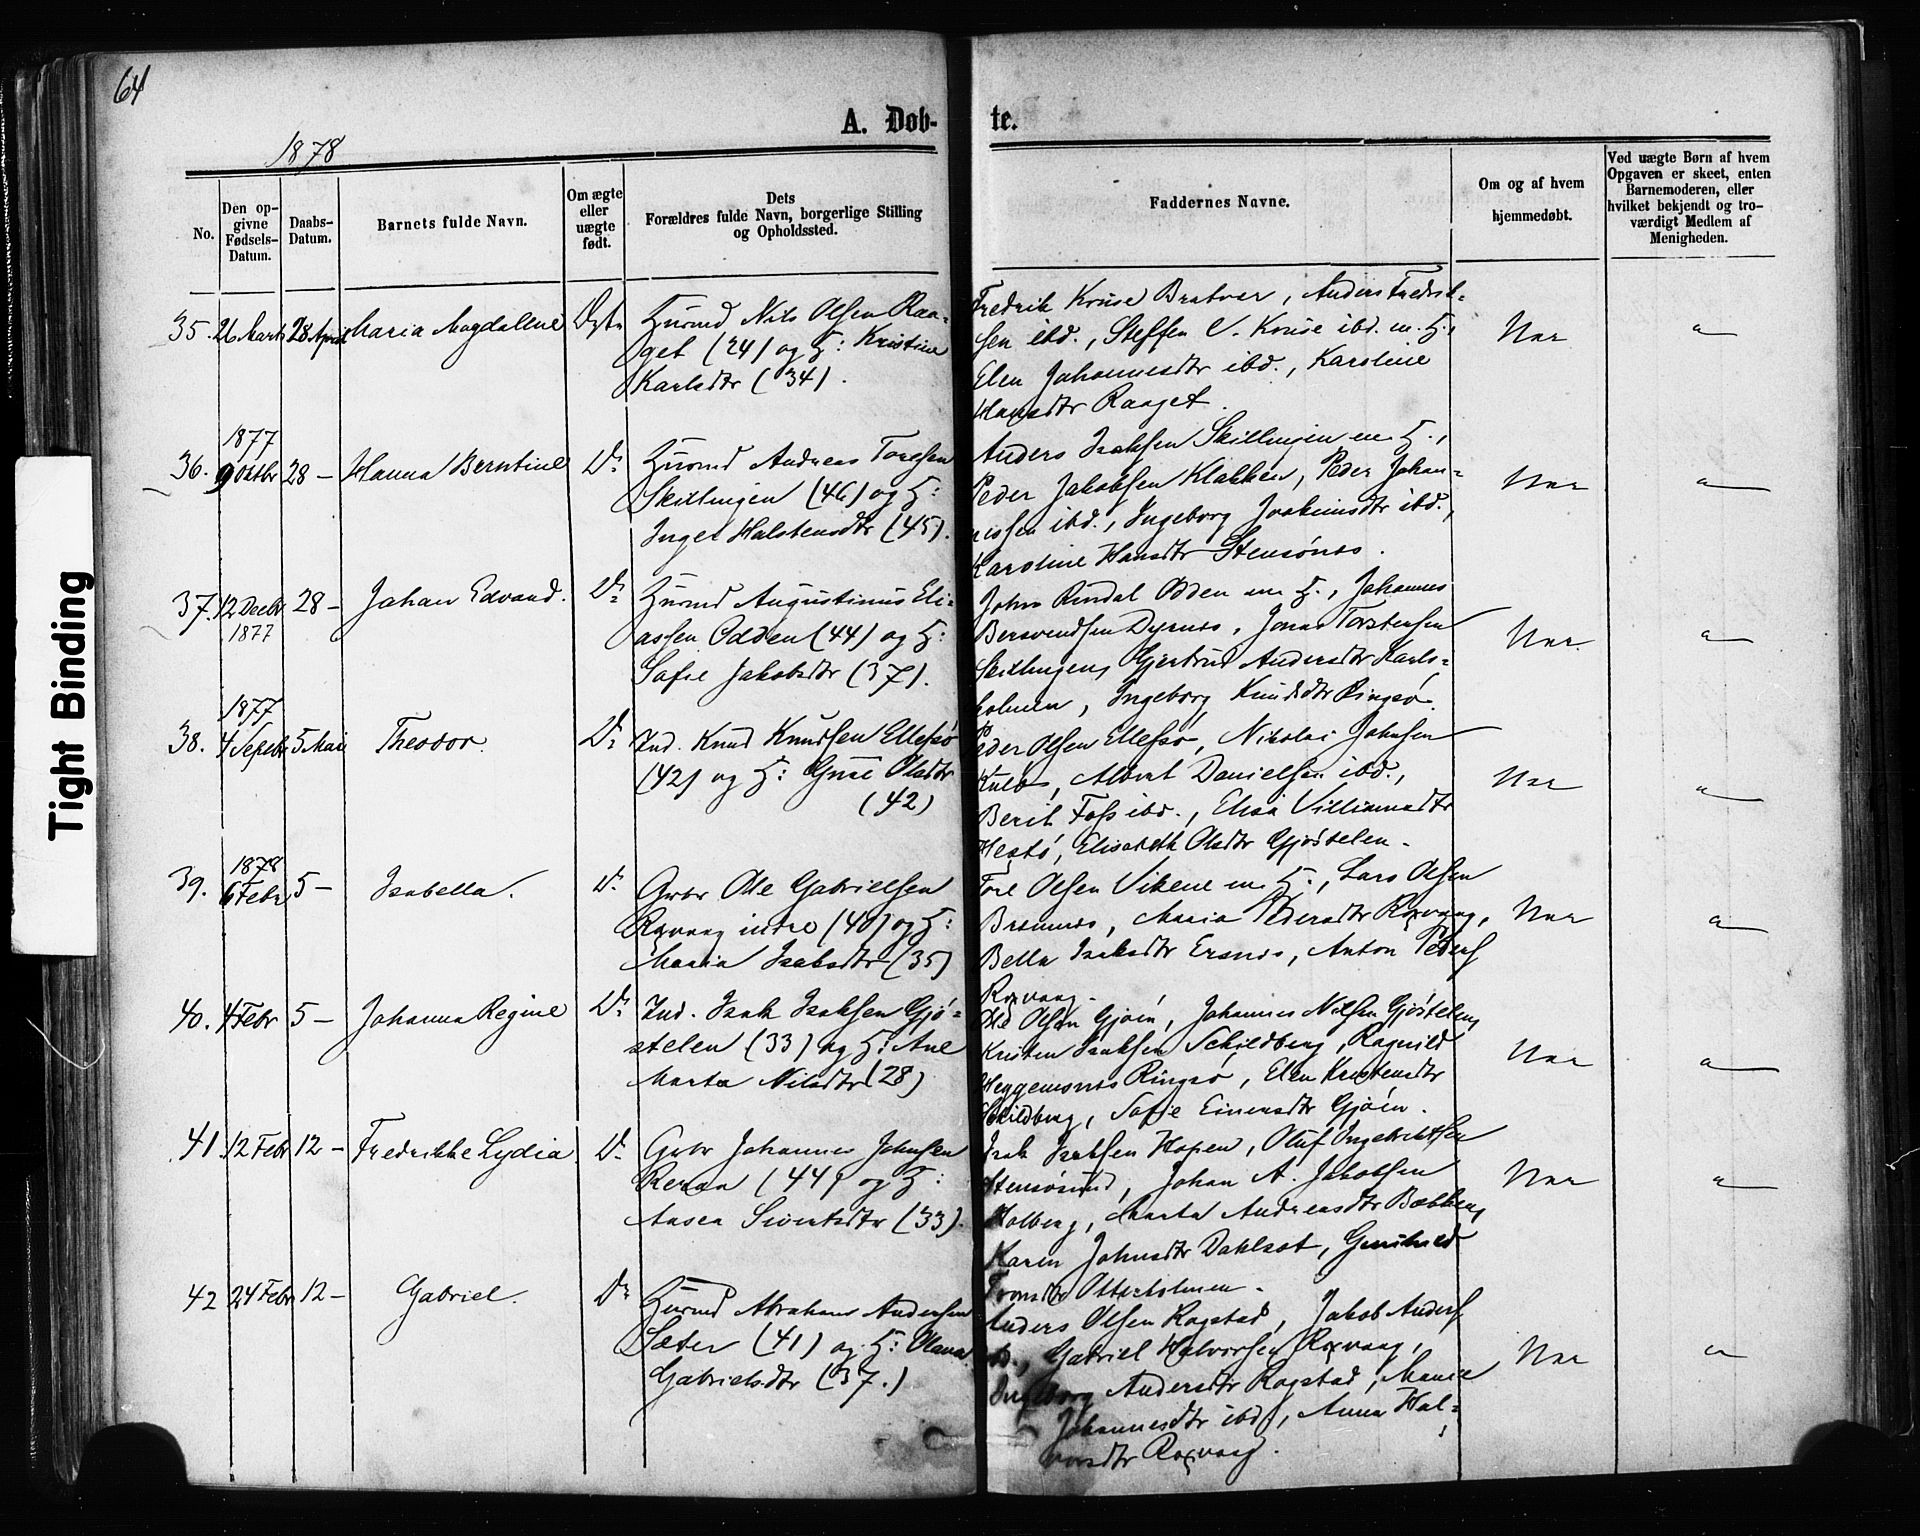 64
A. Døb-
te.
1878
No.
Den op-
givne
Fødsels-
Datum.
Daabs-
Datum.
Barnets fulde Navn.
Om ægte
eller
uægte
født.
Dets
Forældres fulde Navn, borgerlige Stilling
og Opholdssted.
Faddernes Navne.
Om og af hvem
hjemmedøbt.
Ved uægte Børn af hvem
Opgaven er skeet, enten
Barnemoderen, eller
hvilket bekjendt og tro-
værdigt Medlem af
Menigheden.
35. 26 Marts 28 April Maria Magdalene
Husmd Nils Olsen Raa-
get (24) og H: Kristine
Karlsdtr (34).
Fredrik Kruse Bratvær, Anders Fredrik-
sen ibd., Steffen C. Kruse ibd. m. H.,
Elen Johannesdtr ibd., Karoline
Hansdtr Raaget.
1877
36. 9 Oktbr 28 — Hanna Berntine Do
Husmd Andreas Toresen
Skillingen (46) og H:
Inger Halstensdtr (45).
Anders Isaksen Skillingen m H.,
Peder Jakobsen Klakken, Peder Johan-
nessen ibd., Ingeborg Joakimsdtr ibd.,
Karoline Hansdtr Stensønes.
37. 12 Decbr 28 — Johan Edvard. Do
1877
Husmd Augustinus Eli-
assen Odden (44) og H:
Sofie Jakobsdtr (37).
John Rindal Odden m H., Johannes
Bersvendsen Dyrnes, Jonas Torstensen
Skillingen, Gjertrud Andersdtr Karls-
holmen, Ingeborg Knudsdtr Ringsø.
1877
38. 4 Septbr 5 Mai Theodor. Do
Ind. Knud Knudsen Ellefsø
(42) og H: Olsdtr
(42)
Peder Olsen Ellefsø, Nikolai Johnsen
Albert Danielsen ibd.,
Berit Foss ibd., Elisa Villiamsdtr
Hestø, Elisabeth Olsdtr Gjøstelen.
1878
39. 6 Febr 5 — Isabella. Do
Grbr Ole Gabrielsen
Roxvaag indre (40) og H:
Maria Isaksdtr (35)
Tore Olsen Vikene m H., Lars Olsen
Bremnes, Maria Pedersdtr Roxvaag,
Bella Isaksdtr Ersnes, Anton Peders
Roxvaag.
40. 4 Febr 5 — Johanna Regine Do
Ind. Isak Isaksen Gjø-
stelen (33) og H: Ane
Marta Nilsdtr (28)
Ole Olsen Gjøen, Johannes Nilsen Gjøstelen,
Kristen Isaksen Schildberg, Ragnild
Heggemsnes Ringsø, Elen Kristensdtr
Schildberg, Sofie Einersdtr Gjøen.
41 12 Febr 12 — Fredrikke Lydia Do
Grbr Johannes Johnsen
(44) og H:
Aasen Sivertsdtr (33).
Isak Isaksen Hopen, Oluf Ingebriktsen
Stensøsund, Johan A. Jakobsen
Holberg, Marta Andreasdtr Bækken,
Karen Johnsdtr Dahlsæt, Gunhild
Tronsdtr Otterholmen.
42 24 Febr 12 — Gabriel. Do
Husmd Abraham Andersen
Sæter (41) og H: Olava
Gabrielsdtr (37.)
Anders Olsen Rogstad, Jakob Anders
ibd., Gabriel Halvorsen Roxvaag,
Ingeborg Andersdtr Rogstad, Marie
Johannesdtr ibd, Anna Hal-
vorsdtr Roxvaag.
Tight Binding